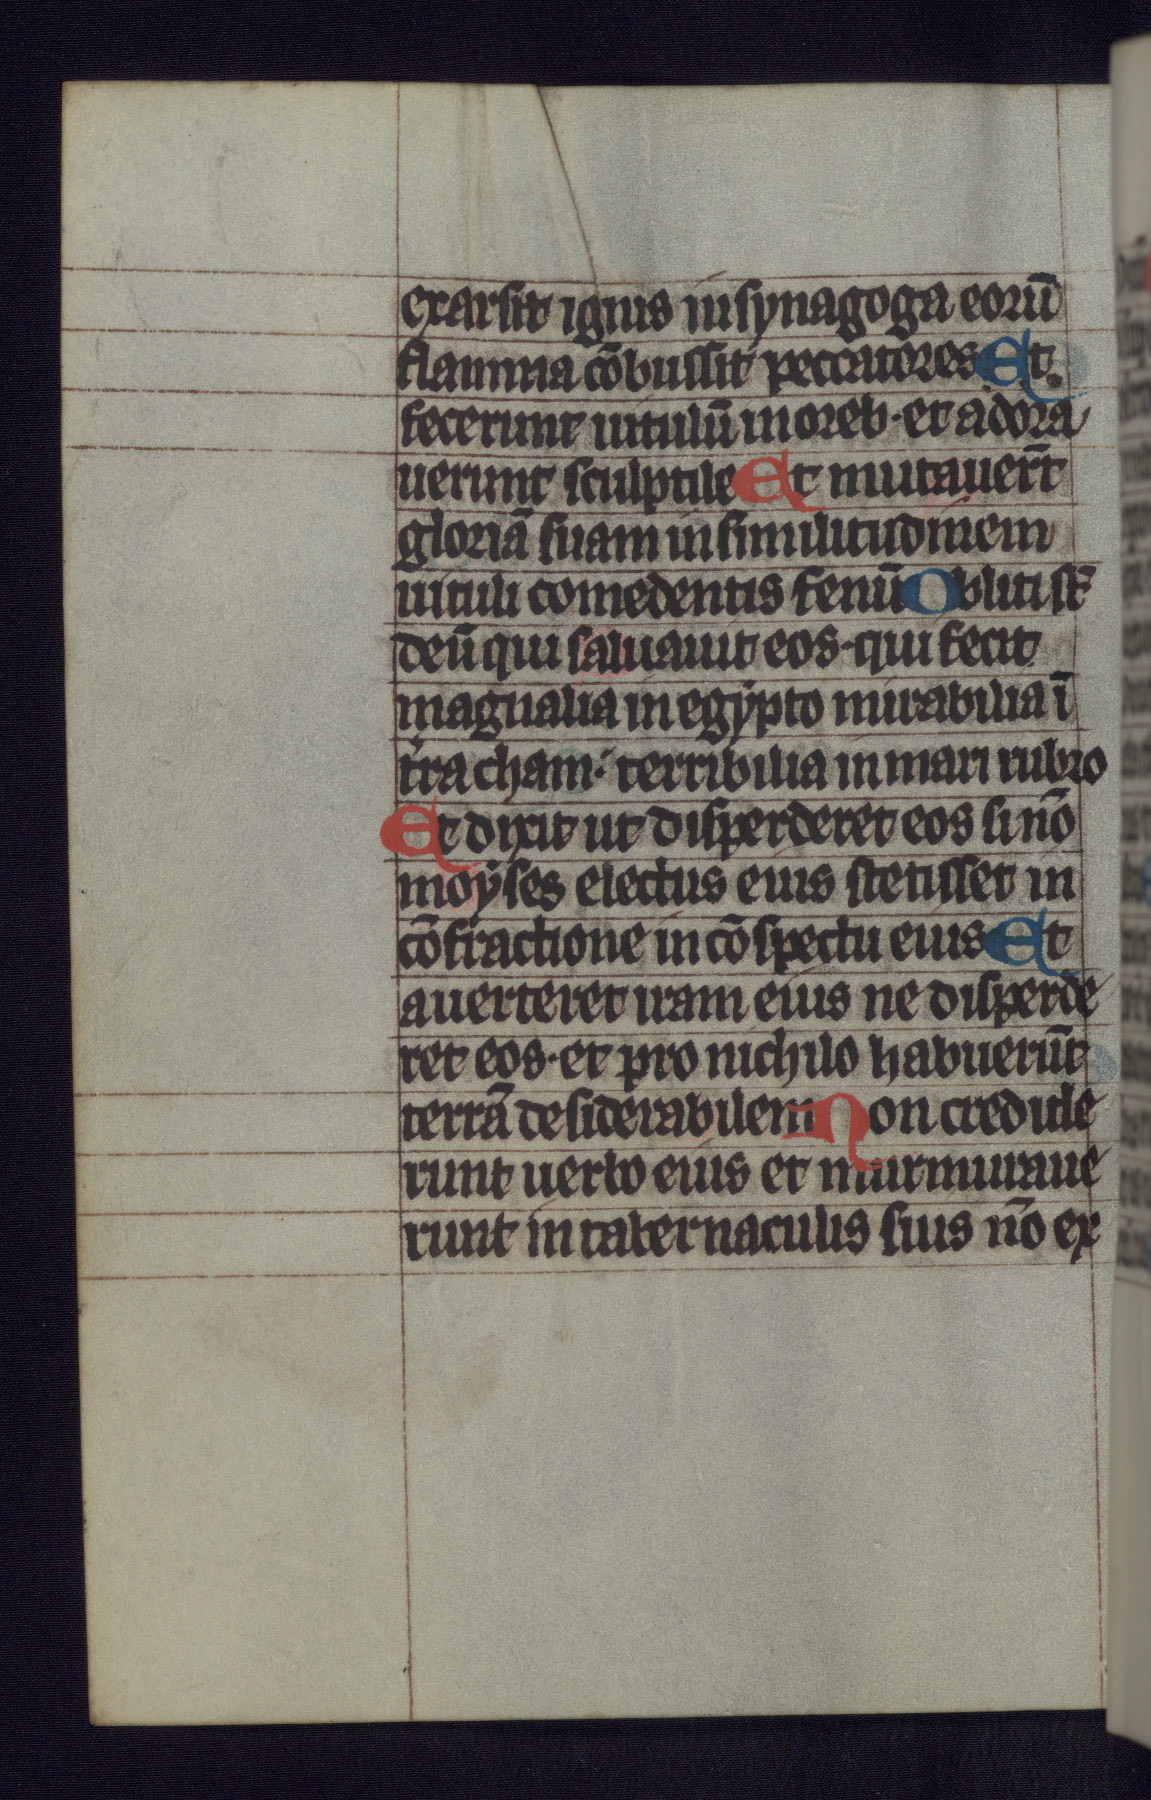 exarsit ignis in synagoga eorū
flamma cōbussit peccatores Et
fecerunt uitulū in oreb · et adora
uerunt sculptile Et mutauer̄t
gloriā suam in similitudinem
uituli comedentis fenū Obliti st̄
deū qui saluauit eos · qui fecit
magnalia in egypto mirabilia ī
tr̄a cham · terribilia in mari rubro
Et dixit ut disperderet eos si nō
moyses electus eius stetisset in
cōfractione in cōspectu eius Et
auerteret iram eius ne disperde
ret eos · et pro nichilo habuerūt
terrā desiderabilem Non credide
runt uerbo eius et murmuraue
runt in tabernaculis suis nō ex